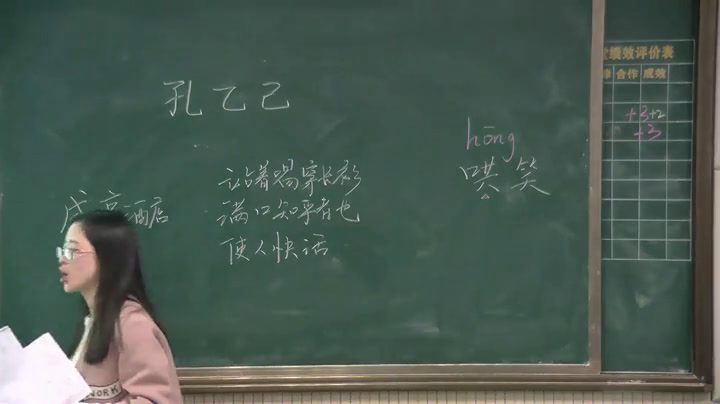 孔乙己
hōng
哄笑
站着喝穿长衫
满口知乎者也
使人快活
酒店
绩效评价表
合作 成效
+3+2
+3
WORK